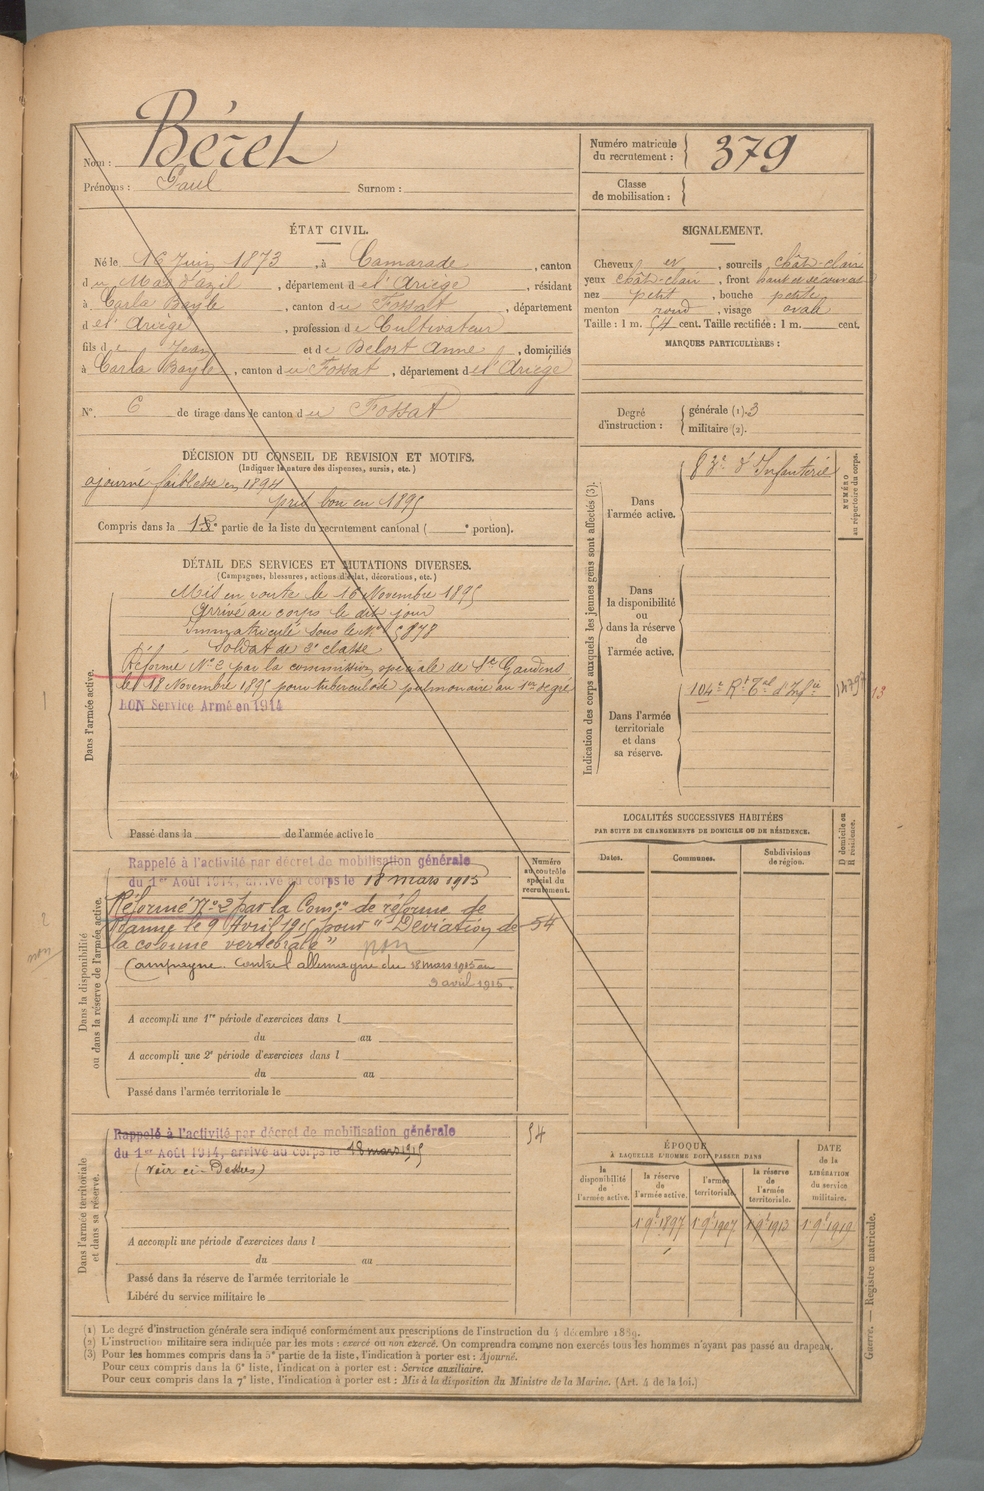 Nom : Béret
Prénoms : Paul Surnom :
Numéro matricule du recrutement : 379
Classe de mobilisation :
ÉTAT CIVIL.
Né le 16 Juin 1873, à Camarade, canton
du Mas d'azil, département de l'Ariège, résidant
à Carla Bayle, canton du Fossat, département
de l'Ariège, profession de Cultivateur
fils de Jean et de Belort Anne, domiciliés
à Carla Bayle, canton du Fossat, département de l'Ariège
N°. 6 de tirage dans le canton du Fossat
SIGNALEMENT.
Cheveux et, sourcils chât-clair
yeux chât-clair, front haut et
nez petit, bouche petite
menton rond, visage ovale
Taille : 1 m. 54 cent. Taille rectifiée : 1 m. cent.
MARQUES PARTICULIÈRES :
Degré d'instruction : générale (1). 3
militaire (2).
DÉCISION DU CONSEIL DE RÉVISION ET MOTIFS.
(Indiquer la nature des dispenses, sursis, etc.)
ajourné faiblesse en 1894
pris bon en 1895
Compris dans la partie de la liste du recrutement cantonal ( e portion).
DÉTAIL DES SERVICES ET MUTATIONS DIVERSES.
(Campagnes, blessures, actions d'éclat, décorations, etc.)
Dans l'armée active.
Mis en route le 16 Novembre 1895
Arrivé au corps le dit jour
Immatriculé sous le N° 5878
Soldat de 2e classe
Réformé N° 2 par la commission spéciale de St Gaudens
le 18 Novembre 1895 pour tuberculose pulmonaire au 1er degré
BON Service Armé en 1914
Passé dans la de l'armée active le
Indication des corps auxquels les jeunes gens sont affectés (3).
NUMÉRO au répertoire du corps.
Dans l'armée active. 83e d'Infanterie
Dans la disponibilité ou dans la réserve de l'armée active.
Dans l'armée territoriale et dans sa réserve. 104e Rt Tal d'Infie
13
LOCALITÉS SUCCESSIVES HABITÉES
PAR SUITE DE CHANGEMENTS DE DOMICILE OU DE RÉSIDENCE.
Dates. Communes. Subdivisions de région. D domicile ou R résidence.
Dans la disponibilité ou dans la réserve de l'armée active.
Numéro au contrôle spécial du recrutement.
Rappelé à l'activité par décret de mobilisation générale
du 1er Août 1914, arrivé au corps le 18 mars 1915
Réformé N° 2 par la Comon de réforme de
Roanne le 9 Avril 1915 pour "Déviation de
la colonne vertébrale" non
54
Campagne contre l'allemagne du 18 mars 1915 au
9 avril 1915.
A accompli une 1re période d'exercices dans l
du au
A accompli une 2e période d'exercices dans l
du au
Passé dans l'armée territoriale le
1
2
non
Dans l'armée territoriale et dans sa réserve.
Rappelé à l'activité par décret de mobilisation générale
du 1er Août 1914, arrivé au corps le 18 mars 1915
(voir ci-Dessus)
54
A accompli une période d'exercices dans l
du au
Passé dans la réserve de l'armée territoriale le
Libéré du service militaire le
ÉPOQUE
À LAQUELLE L'HOMME DOIT PASSER DANS
la disponibilité de l'armée active.
la réserve de l'armée active. 1 9bre 1897
l'armée territoriale. 1 9bre 1907
la réserve de l'armée territoriale. 1 9bre 1913
DATE de la LIBÉRATION du service militaire. 1 9bre 1919
(1) Le degré d'instruction générale sera indiqué conformément aux prescriptions de l'instruction du 4 décembre 1889.
(2) L'instruction militaire sera indiquée par les mots : exercé ou non exercé. On comprendra comme non exercés tous les hommes n'ayant pas passé au drapeau.
(3) Pour les hommes compris dans la 5e partie de la liste, l'indication à porter est : Ajourné.
Pour ceux compris dans la 6e liste, l'indication à porter est : Service auxiliaire.
Pour ceux compris dans la 7e liste, l'indication à porter est : Mis à la disposition du Ministre de la Marine. (Art. 4 de la loi.)
Guerre. — Registre matricule.